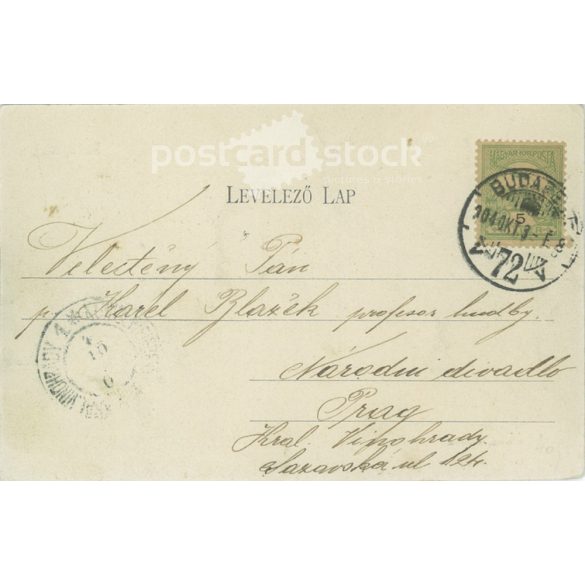 postcard stock
LEVELEZŐ LAP
MAGYAR KIR. POSTA
5
BUDAPEST
904 OKT 3
72
Velectěný Pán
p. Karel Blažěk profesor hudby.
Národní divadlo
Prag
Král. Vinohrady.
Sazavská ul 124.